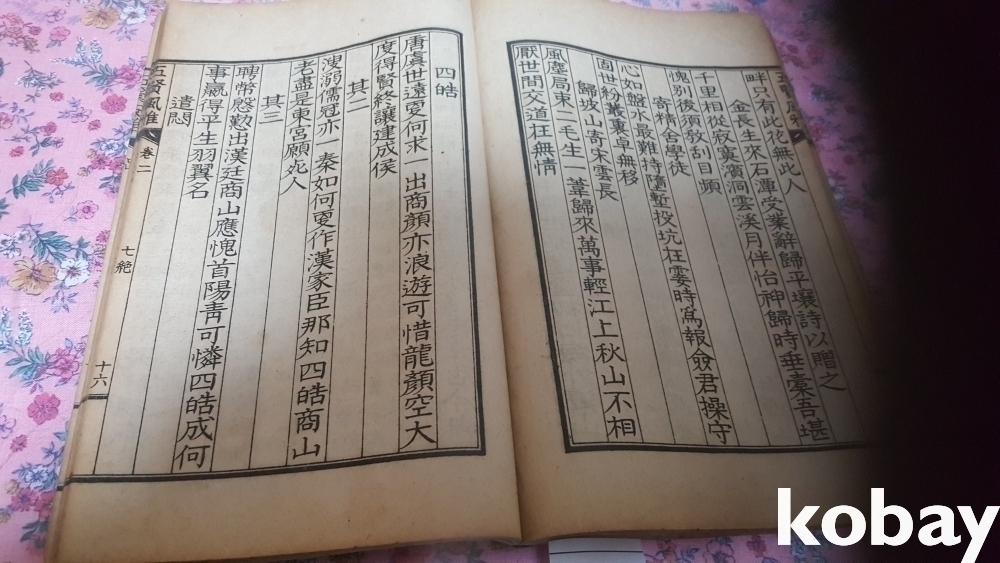 畔只有此花無此人
金長生來石潭受業辭歸平壤詩以贈之
千里相從寂寞濱洞雲溪月伴怡神歸時垂橐吾堪
愧別後須教刮目頻
寄精舍學徒
心如盤水最難持墮塹投坑在霎時寫報僉君操守
固世紛叢裏卓無移
歸坡山寄宋雲長
風塵局束二毛生一葦歸來萬事輕江上秋山不相
厭世間交道在無情
四皓
唐虞世遠更何求一出商顏亦浪遊可惜龍顏空大
度得賢終讓建成侯
其二
溲溺儒冠亦一秦如何更作漢家臣那知四皓商山
老盡是東宮願死人
其三
聘幣慇懃出漢廷商山應愧首陽靑可憐四皓成何
事贏得平生羽翼名
遣悶
五賢風雅 卷二 七絶 十六
kobay